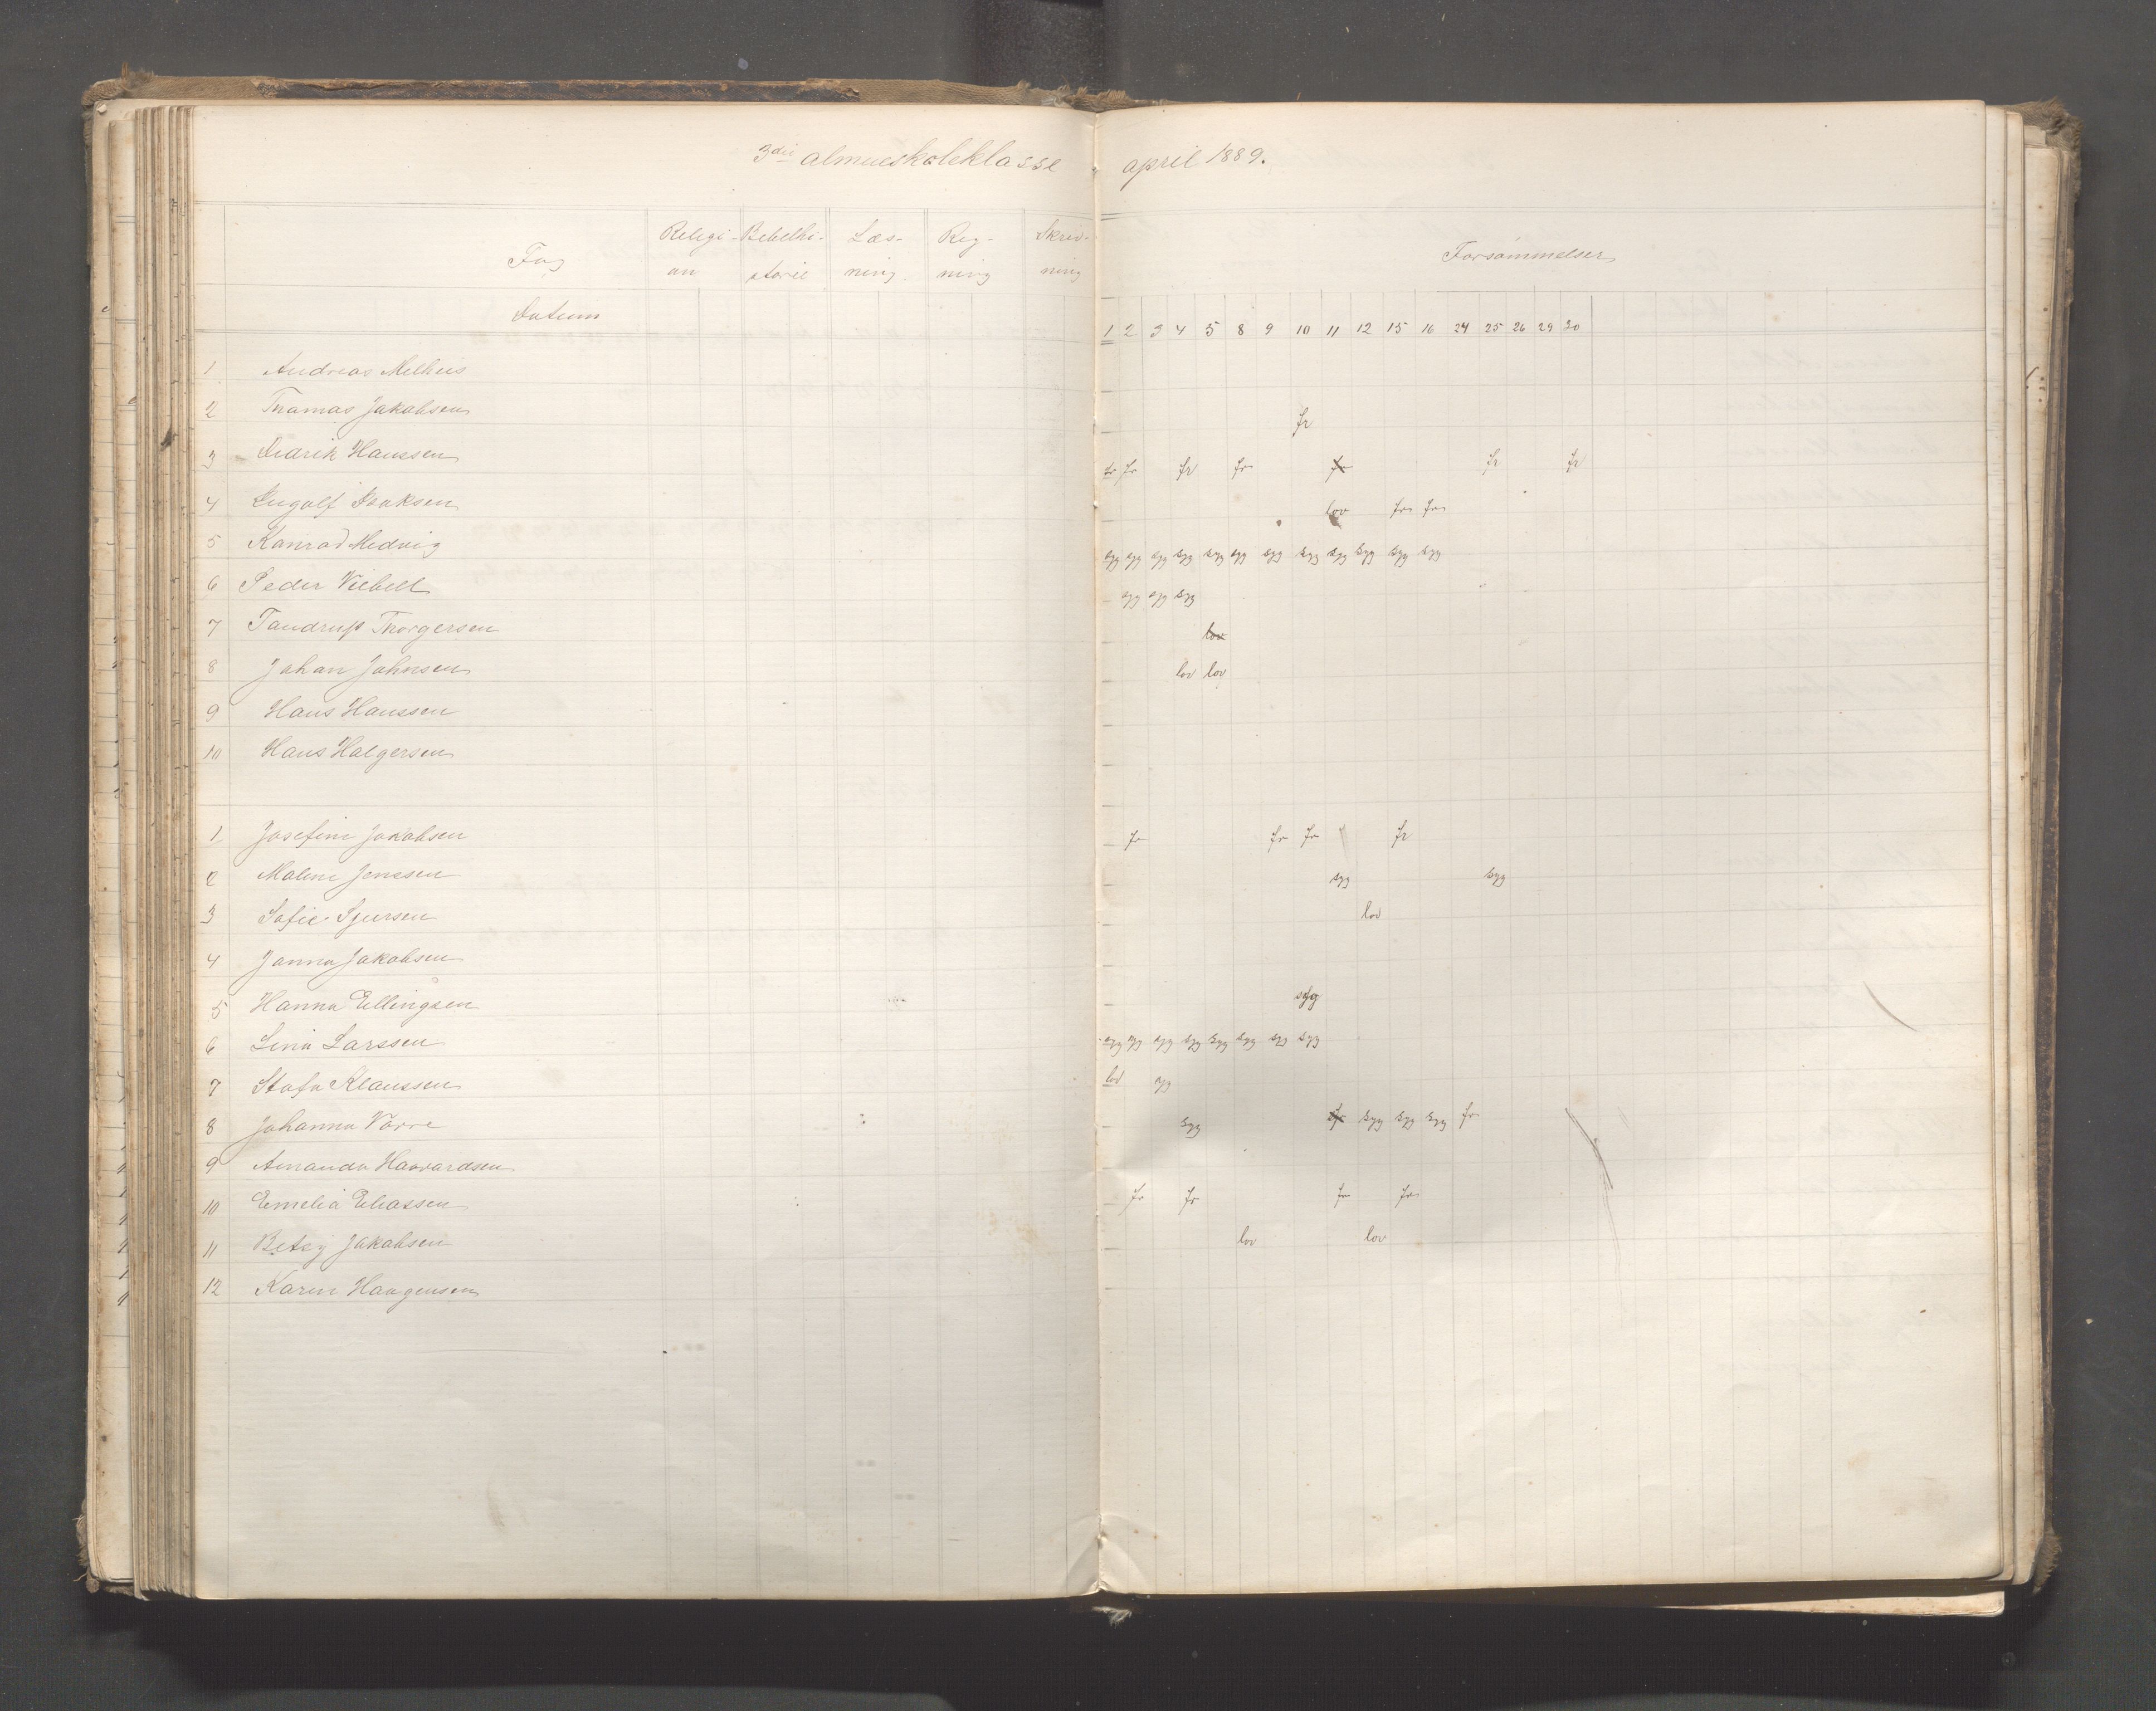 3die almueskoleklasse april 1889.
Fag Religi- Bibelhi- Læs- Reg- Skriv- Forsømmelser
on storie ning. ning ning
Datum 1 2 3 4 5 8 9 10 11 12 15 16 24 25 26 29 30
1 Andreas Melhus
2 Thomas Jakobsen fr
3 Didrik Hanssen fr fr fr fr fr fr fr
4 Ingolf Isaksen lov fr fr
5 Konrad Medvig syg syg syg syg syg syg syg syg syg syg syg syg
6 Peder Viebell syg syg syg
7 Tandrup Thorgersen lov
8 Johan Johnsen lov lov
9 Hans Hanssen
10 Hans Halgersen
1 Josefine Jakobsen fr fr fr fr
2 Maline Jenssen syg syg
3 Sofie Sjursen lov
4 Janna Jakobsen
5 Hanna Ellingsen syg
6 Lina Larssen syg syg syg syg syg syg syg syg
7 Stofa Klaussen lov syg
8 Johanna Vorre syg fr syg syg syg fr
9 Amanda Havardsen
10 Emelia Eliassen fr fr fr fr
11 Betsy Jakobsen lov lov
12 Karen Haagensen